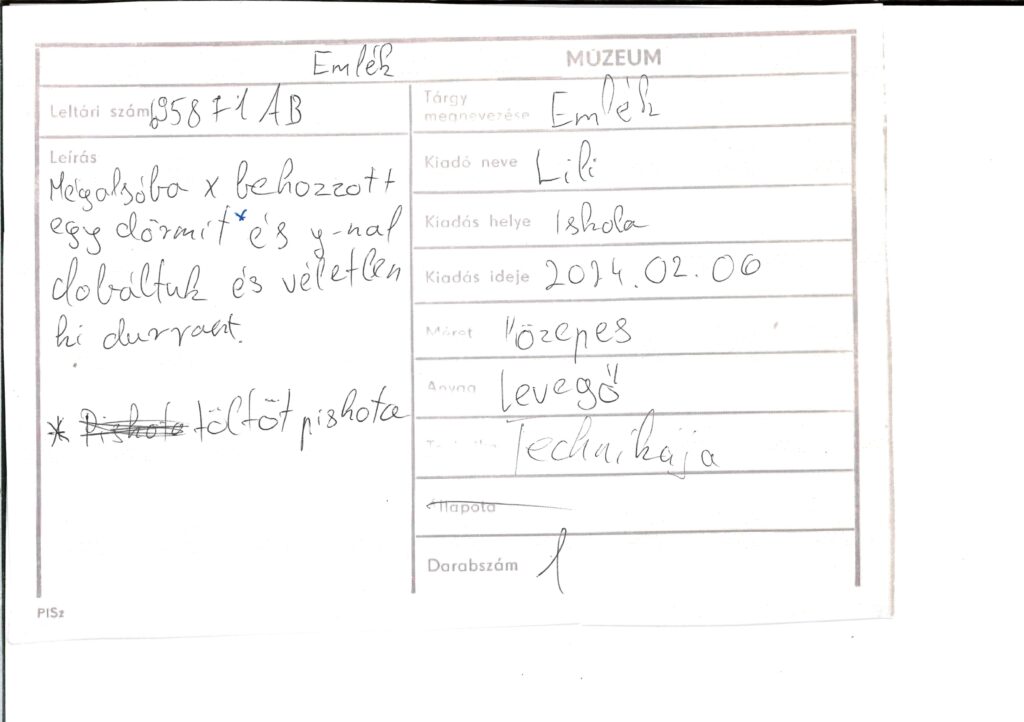 Emlék MÚZEUM
Leltári szám 695871 AB
Leírás
Mégalsóba x behozzott
egy dörmit* és y-nal
dobáltuk és véletlen
ki durrant.
* Piskota töltöt piskota
Tárgy
megnevezése Emlék
Kiadó neve Lili
Kiadás helye Iskola
Kiadás ideje 2024.02.06
Méret közepes
Anyag levegő
Technikája
Állapota
Darabszám 1
PISz